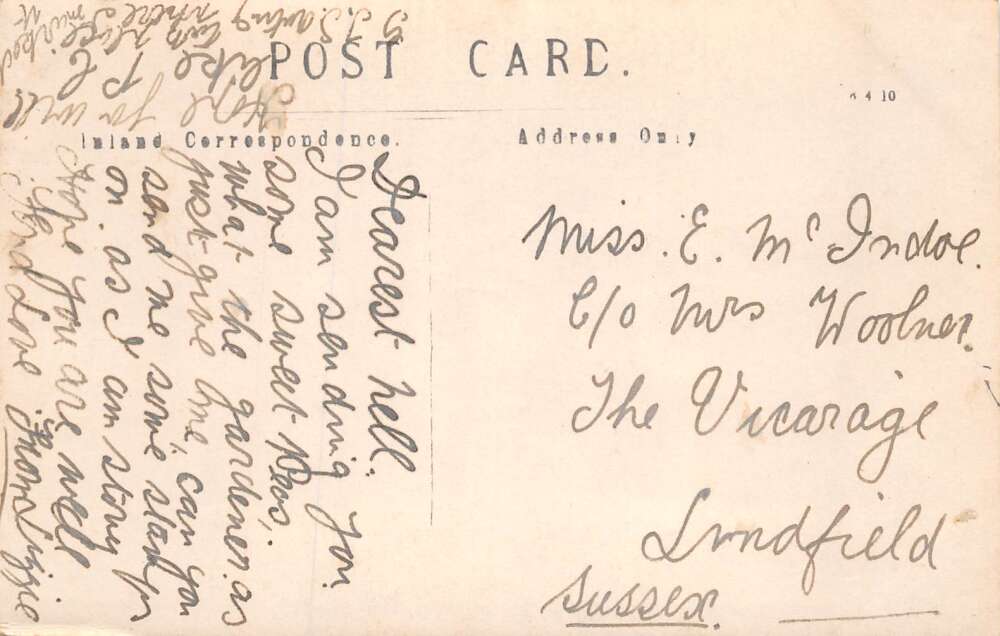 POST CARD.
4 10
Inland Correspondence.
Address Only
Dearest nell.
I am sending you
some sweet Peas.
what the gardener as
just give me, can you
send me some stamps
on. as I am stony
Hope you are well
fond Love from Lizzie
Hope you will
like
place
where I
marked
Miss. E. McIndoe.
C/o Mrs Woolner.
The Vicarage
Lindfield
Sussex.